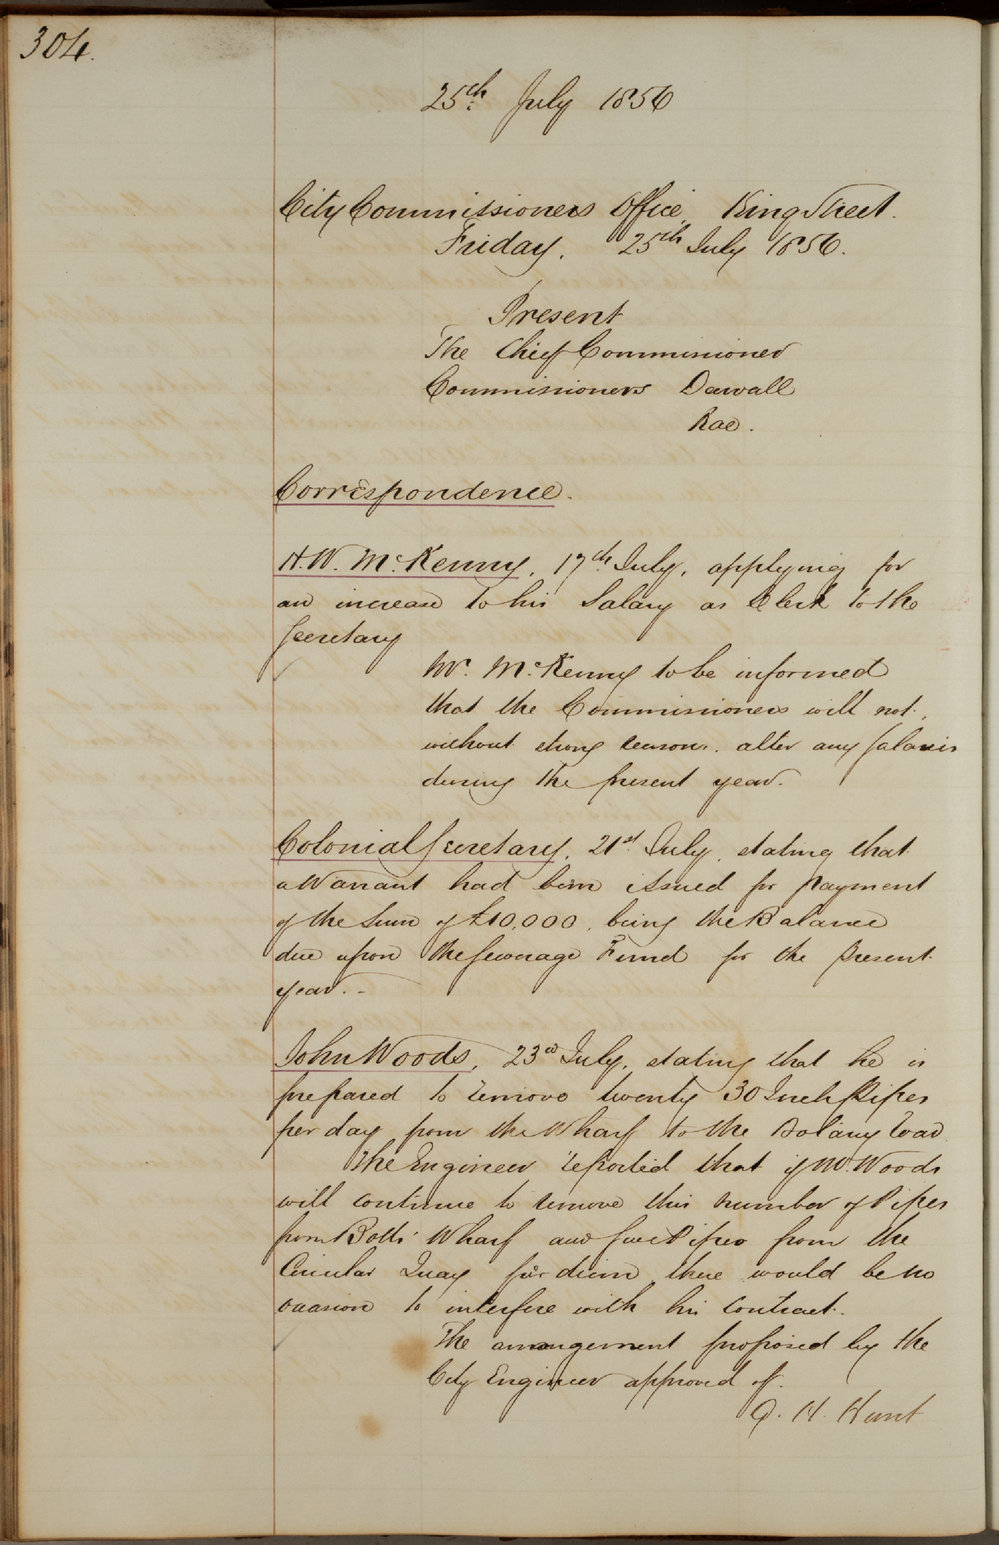 304.
25th July 1856
City Commissioners Office, King Street.
Friday. 25th July 1856.
Present
The Chief Commissioner
Commissioners Darvall
Rae.
Correspondence.
H. W. McKenny, 17th July, applying for
an increase to his Salary as Clerk to the
Secretary
Mr. McKenny to be informed
that the Commissioners will not,
without strong reasons, alter any Salaries
during the present year.
Colonial Secretary, 21st July, stating that
a Warrant had been issued for payment
of the Sum of £10,000, being the Balance
due upon the Sewerage Fund for the present
year. -
John Woods, 23rd July, stating that he is
prepared to remove twenty 30 Inch Pipes
per day from the Wharf to the Botany Road
The Engineer reported that if Mr. Woods
will continue to remove this number of Pipes
from Botts' Wharf and five Pipes from the
Circular Quay per diem there would be no
occasion to interfere with his Contract.
The arrangement proposed by the
City Engineer approved of.
H. Hunt